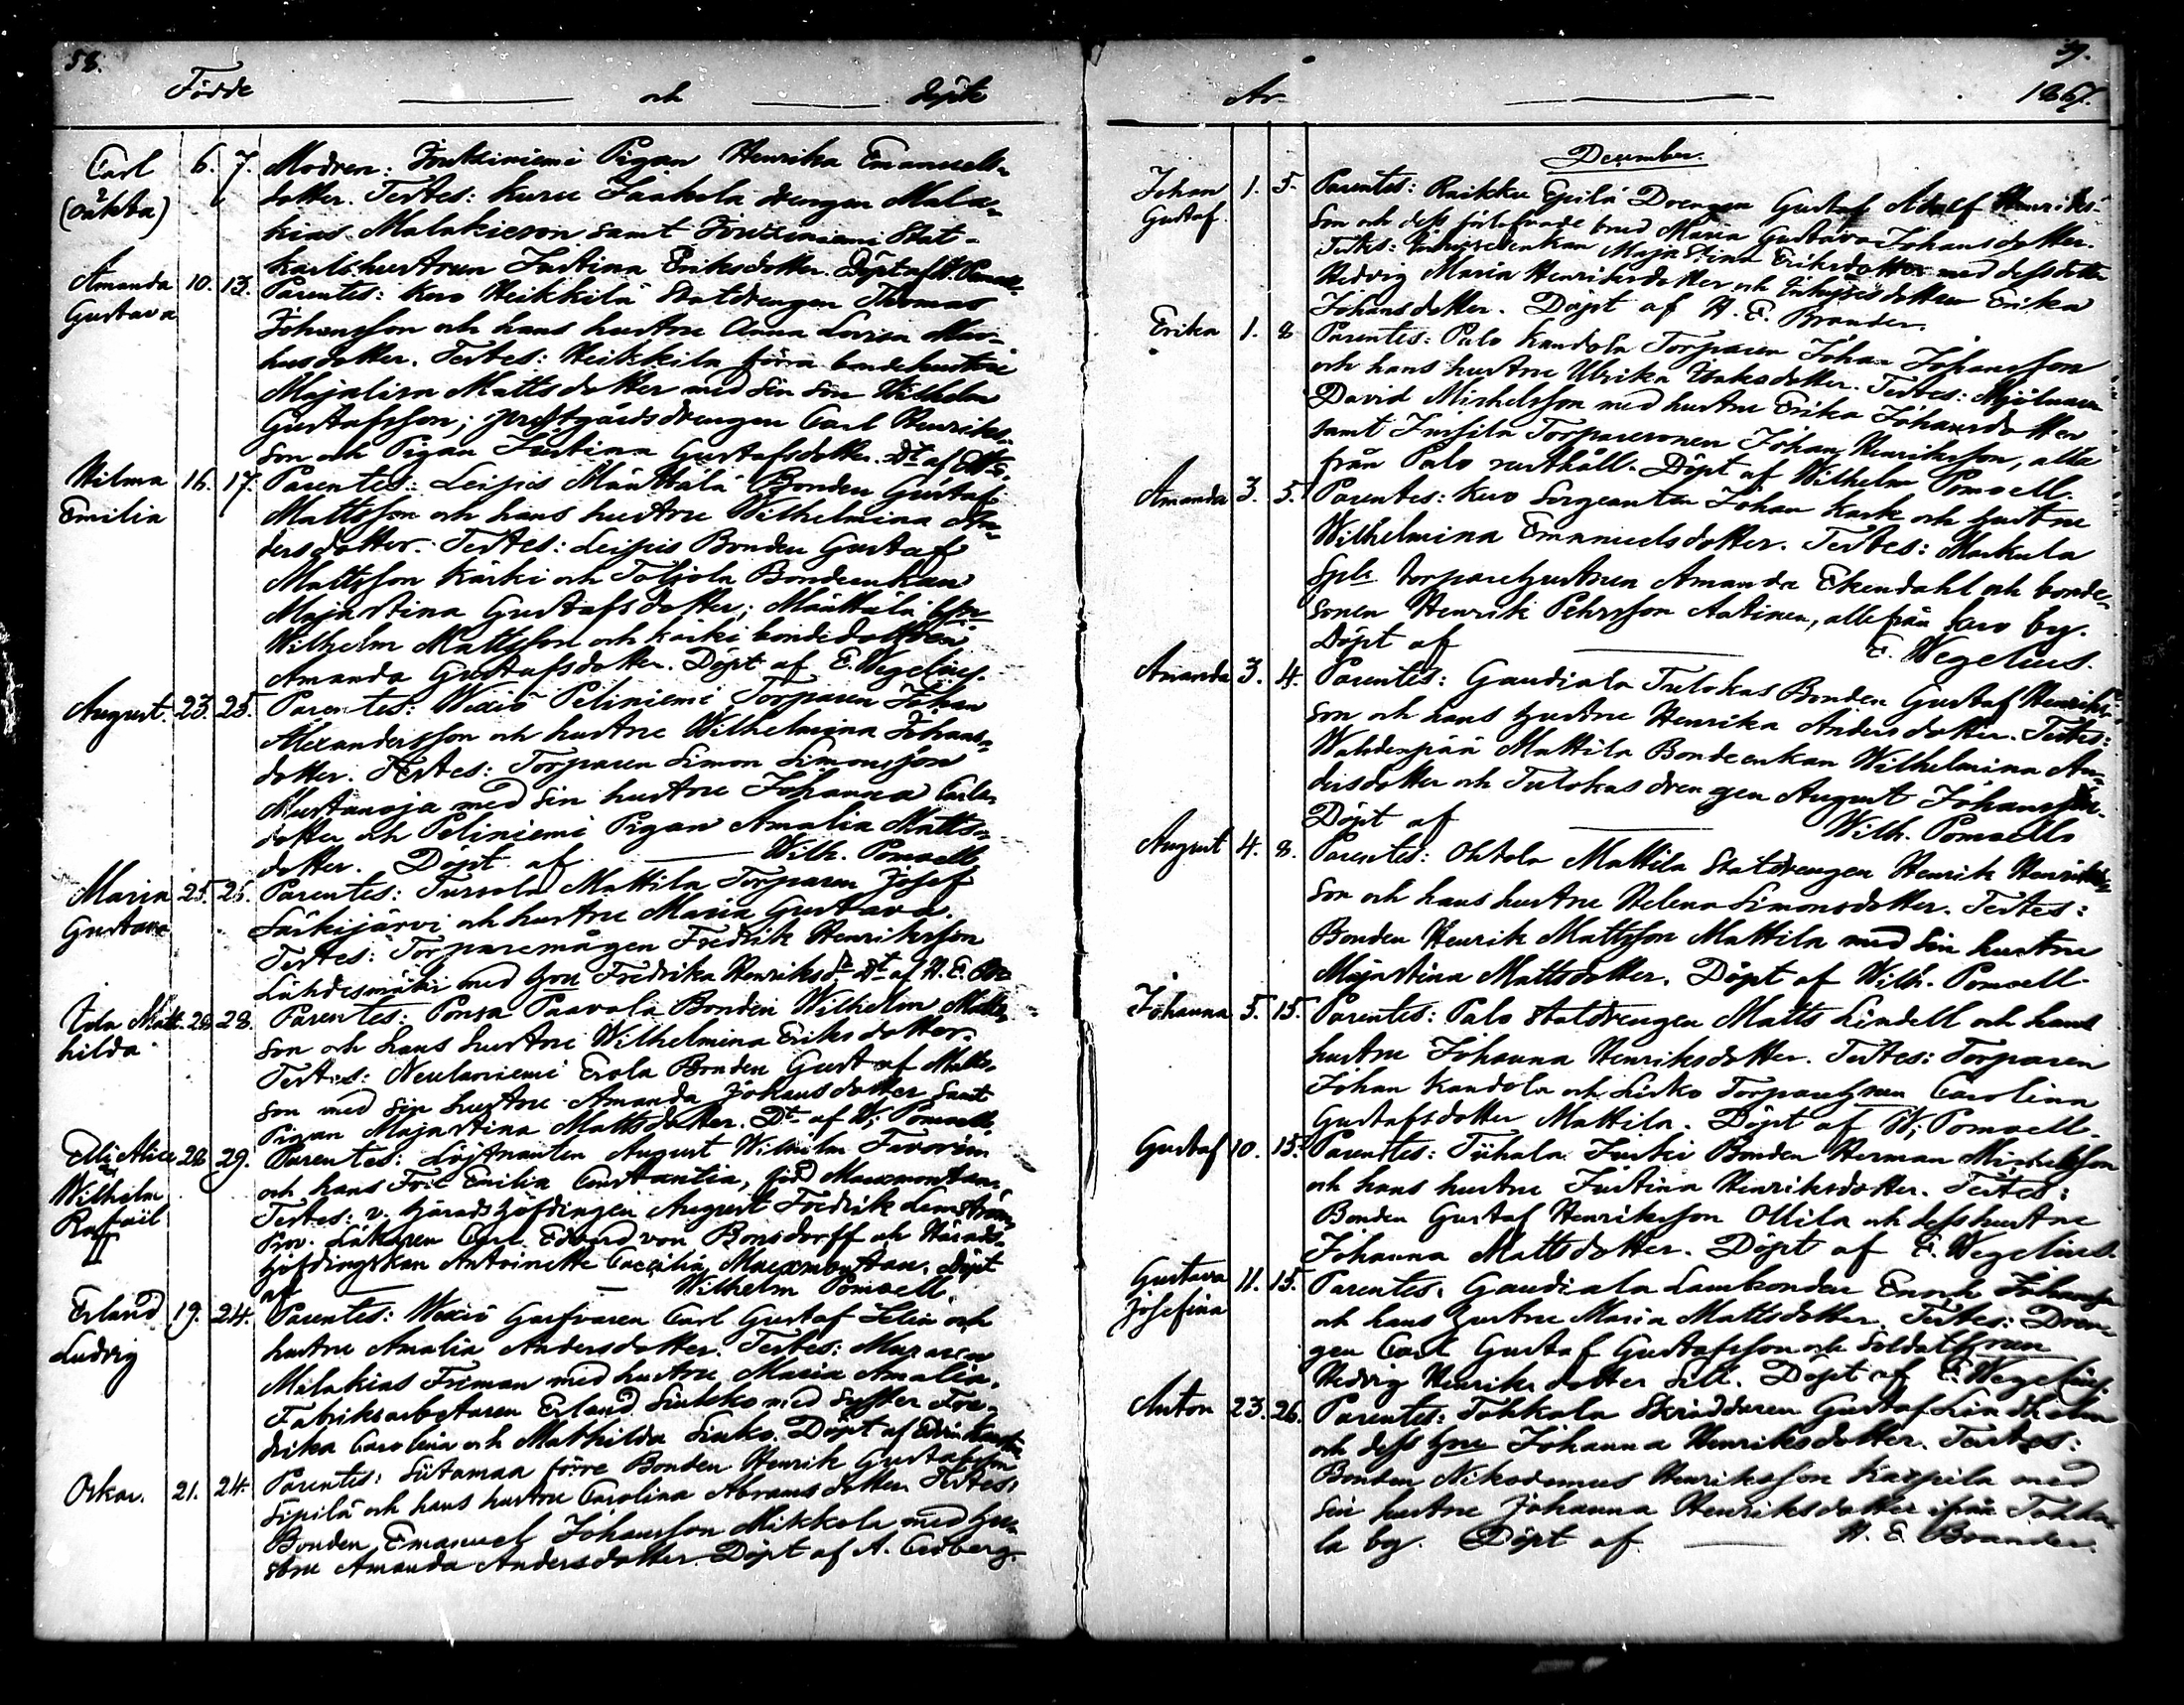 58.
Födde och döpte
Carl 6. 7. Modren: Jontziniemi Pigan Henrika Emanuels-
(oäkta) dotter. Testes: Kuru Jaakola drengen Mala-
kias Malakieson samt Stat-
karlshustrun Justina Eriksdotter. Döpt af W. Pomoell.
Amanda 10. 13. Parentes: Kuro Heikkilä Statdrengen Thomas
Gustava Johansson och hans hustru Anna Lovisa
husdotter. Testes: Heikkilä förra bondehustru
Majalisa Mattsdotter med sin son Wilhelm
Gustafsson; prestgårdsdrengen Carl Henriks-
son och Pigan Justina Gustafsdotter. Dt af
Hilma 16. 17. Parentes: Leipis Mänttälä Bonden Gustaf
Emilia Mattsson och hans hustru Wilhelmina An-
dersdotter. Testes: Leipis Bonden Gustaf
Mattsson Kärki och Toljola Bondeenkan
Majastina Gustafsdotter; Mänttälä
Wilhelm Mattsson och Kärki bondedottren
Amanda Gustafsdotter. Döpt af E. Wegelius.
August. 23. 25. Parentes: Wexiö Peliniemi Torparen Johan
Alexandersson och hustru Wilhelmina Johans-
dotter. Testes: Torparen Simon Simonsson
Mustanoja med sin hustru Johanna Carls-
dotter och Peliniemi Pigan Amalia Matts-
dotter. Döpt af Wilh. Pomoell
Maria 25. 26. Parentes: Tursola Mattila Torparen Josef
Gustava Särkijärvi och hustru Maria Gustava.
Testes: Torparemågen Fredrik Henriksson
Lähdesmäki med hru Fredrika Henriksdr Dt af H. E.
Ida Mat- 28. 28. Parentes: Ponsa Paavola Bonden Wilhelm Matts-
hilda son och hans hustru Wilhelmina Eriksdotter.
Testes: Neulaniemi Erola Bonden Gustaf Matts-
son med sin hustru Amanda Johansdotter samt
Pigan Majastina Mattsdotter. Dt af W. Pomoell.
Elli Alice 28 29. Parentes: Löjtnanten August Wilhelm Favorin
Wilhelm och hans Fru Emilia Constantia, född Maexmontan.
Rafaël Testes: v. Häradshöfdingen August Fredrik Lemström,
Prov. Läkaren Carl Edvard von Bonsdorff och Härads-
höfdingskan Antoinette Cæcilia Maexmontan. Döpt
af Wilhelm Pomoell.
Erland 19. 24. Parentes: Wexiö Garfvaren Carl Gustaf Felin och
Ludvig hustru Amalia Andersdotter. Testes: Muraren
Malakias Friman med hustru Maria Amalia.
Fabriksarbetaren Erland Sinkko med syster Fre-
drika Carolina och Mathilda Sinko. Döpt af
Oskar. 21. 24. Parentes: Sütamaa förre Bonden Henrik Gustafsson
Sipilä och hans hustru Carolina Abramsdotter. Testes:
Bonden Emanuel Johansson Mikkola med hu-
stru Amanda Andersdotter. Döpt af A. Cedberg.
59.
År 1867.
December.
Johan 1. 5. Parentes: Raikku Epilä Drengen Gustaf Adolf Henriks-
Gustaf son och dess förlofvade brud Maria Gustava Johansdotter.
Testes: Inhyseenkan Maja Stina Eriksdotter med dess dotter
Hedvig Maria Henriksdotter och Inhysesdottren Erika
Johansdotter. Döpt af H. E. Brander.
Erika 1. 8 Parentes: Palo Kandola Torparen Johan Johansson
och hans hustru Ulrika Isaksdotter. Testes: Mjölnaren
David Michelsson med hustru Erika Johansdotter
samt Torparesonen Johan Henriksson, alla
från Palo rusthåll. Döpt af Wilhelm Pomoell.
Amanda 3. 5. Parentes: Kuro Sergeanten Johan Kark och hustru
Wilhelmina Emanuelsdotter. Testes: Markula
Spls torparehustrun Amanda Ekendahl och bonde-
sonen Henrik Pehrsson Aatinen, alle från Kuro by.
Döpt af E. Wegelius.
Amanda 3. 4. Parentes: Gaudiala Tulokas Bonden Gustaf Henriks-
son och hans hustru Henrika Andersdotter. Testes:
Wahdenpää Mattila Bondeenkan Wilhelmina An-
dersdotter och Tulokas drengen August Johansson.
Döpt af Wilh. Pomoell
August 4. 8. Parentes: Ohtola Mattila Statdrengen Henrik Henriks-
son och hans hustru Helena Simonsdotter. Testes:
Bonden Henrik Mattsson Mattila med sin hustru
Majastina Mattsdotter. Döpt af Wilh. Pomoell.
Johanna 5. 15. Parentes: Palo Statdrengen Matts Lindell och hans
hustru Johanna Henriksdotter. Testes: Torparen
Johan Kandola och Sirko Torparehrun Carolina
Gustafsdotter Mattila. Döpt af W. Pomoell.
Gustaf 10. 15. Parentes: Tiihala Junki Bonden Herman Michelsson
och hans hustru Justina Henriksdotter. Testes:
Bonden Gustaf Henriksson Ollila och dess hustru
Johanna Mattsdotter. Döpt af E. Wegelius.
Gustava 11. 15. Parentes. Gaudiala Lambonden Enock Johansson
Josefina och hans hustru Maria Mattsdotter. Testes: Dren-
gen Carl Gustaf Gustafsson och Soldathrun
Hedvig Henriksdotter Sill. Döpt af E. Wegelius.
Anton 23. 26. Parentes: Tohkala Skräddaren Gustaf Lindholm
och dess hru Johanna Henriksdotter. Testes:
Bonden Nikodemus Henriksson Karpila med
sin hustru Johanna Henriksdotter ifrån Tohka-
la by. Döpt af H. E. Brander.